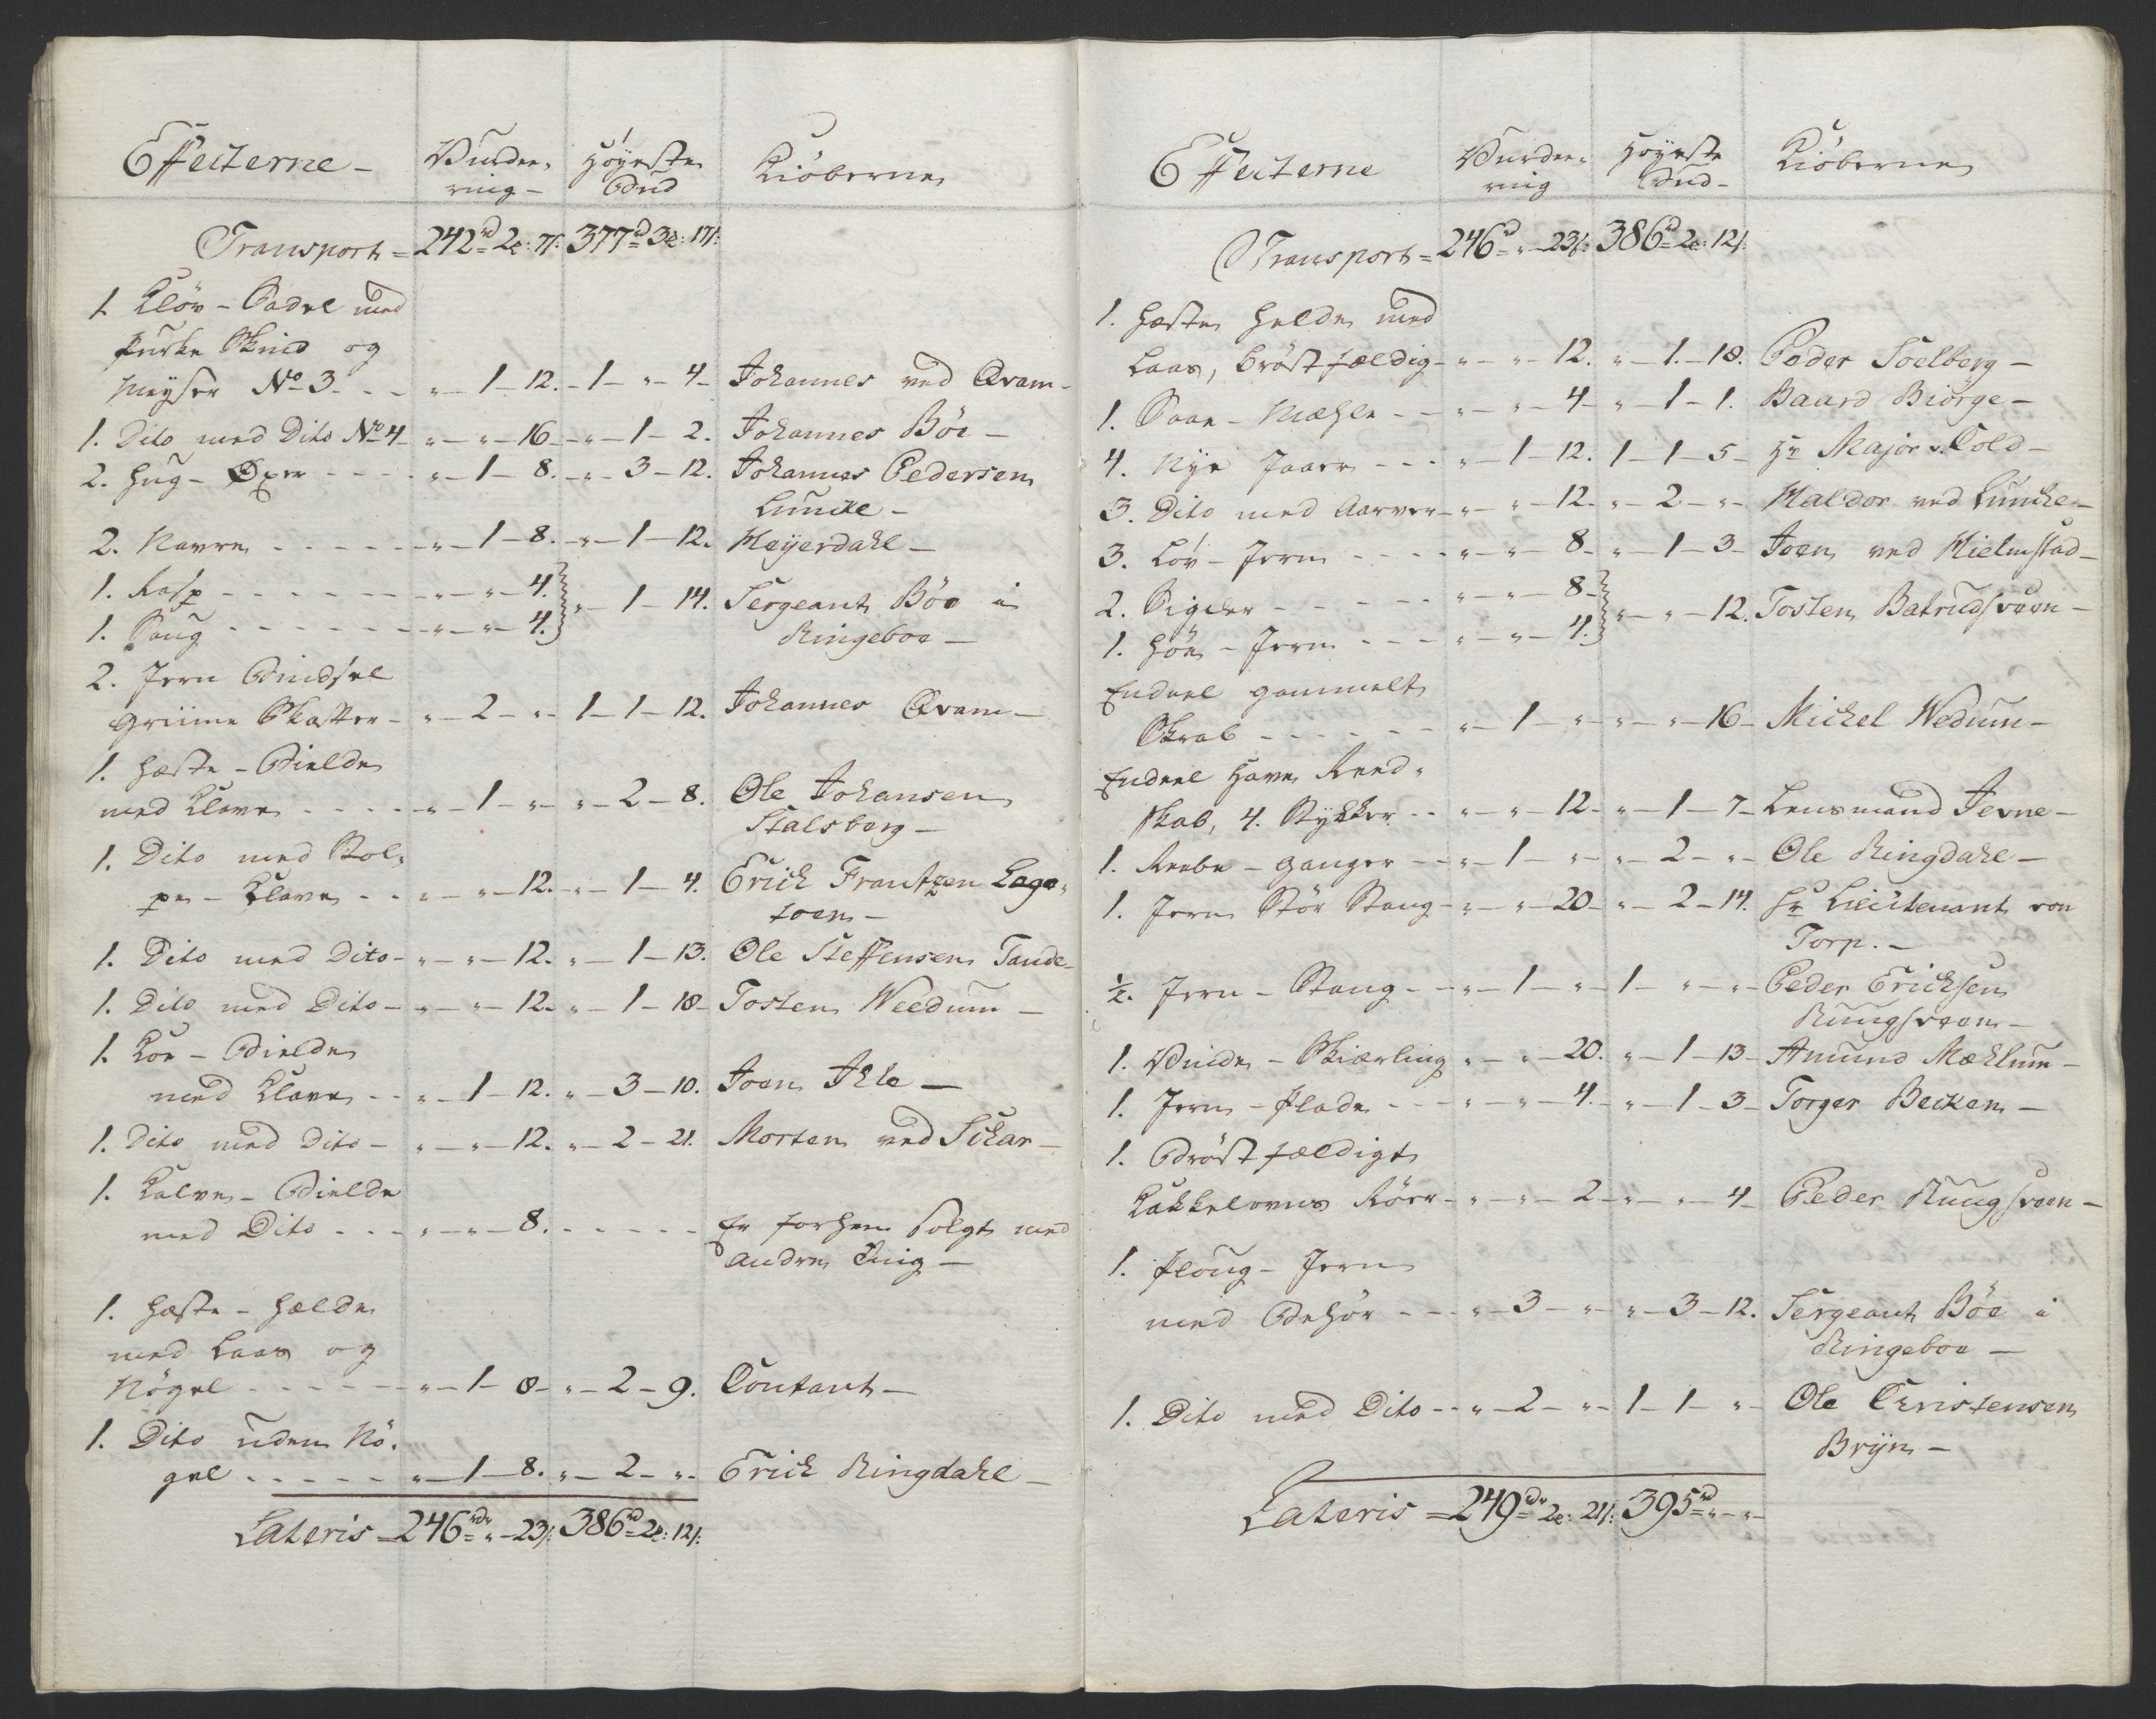 Effecterne - Vurder- Höyeste Kiöberne
ring - Bud
Transport = 242 rd 2 : 7 s: 377 rd 3 : 17 s:
1. Klöv - Sadel med
Purke Skind og
Meyser No 3. - - " - 1 - 12. - 1 - " - 4 - Johannes ved Qvam -
1. Dito med Dito No 4 - " - " - 16 - " - 1 - 2. Johannes Böe -
2. Hug - Öxer - - - - " - 1 - 8. - " - 3 - 12. Johannes Pedersen
Luncke -
2. Navre - - - - - " - 1 - 8. - " - 1 - 12. Heyerdahl -
1. Rasp - - - - - - - " - " - 4. } " - 1 - 14. Sergeant Böe i
1. Saug - - - - - - - " - " - 4. } Ringeboe -
2. Jern Bindsel
Griime Skatter - " - 2 - " - 1 - 1 - 12. Johannes Qvam -
1. Hæste - Bielde
med Klave - - - - - " - 1 - " - " - 2 - 8. Ole Johansen
Stalsberg -
1. Dito med Stol-
pe - Klave - - " - " - 12. - " - 1 - 4. Erich Frantzen Laga-
toen -
1. Dito med Dito - " - " - 12. " - 1 - 13. Ole Steffensen Tande -
1. Dito med Dito - " - " - 12. " - 1 - 18 - Tosten Weedum -
1. Koe - Bielde
med Klave - - " - 1 - 12. " - 3 - 10. Joen Ihle -
1. Dito med Dito - " - " - 12. " - 2 - 21. Morten ved Sckar -
1. Kalve - Bielde
med Dito - - - " - " - 8. - - - - - Er forhen solgt med
andre Ting -
1. Hæste - Hælde
med Laas og
Nögel - - - - - " - 1 - 8 - " - 2 - 9. Contant -
1. Dito uden Nö-
gel - - - - - " - 1 - 8. " - 2 - " - Erich Ringdahl -
Lateris = 246 rd " - 23 s: 386 rd 2 : 12 s:
Effecterne Vurder- Höyeste Kiöberne
ring Bud -
Transport = 246 rd " - 23 s: 386 rd 2 : 12 s:
1. Hæste Helde med
Laas, bröstfældig - " - " - 12. " - 1 - 18. Peder Soelberg -
1. - " - " - 4 - " - 1 - 1. Baard Biörge -
4. Nye - - - " - 1 - 12. 1 - 1 - 5 - Hr Major v. Cold -
3. Dito med - " - " - 12. " - 2 - " - Haldor ved Luncke -
3. Löv - Jern - - - - " - " - 8 - " - 1 - 3 - Joen ved Hielmstad -
2. Sigder - - - - - " - " - 8 - } " - " - 12. Tosten Batrudsvven -
1. Höe - Jern - - - " - " - 4. }
Endeel gammelt
Skrab - - - - - - " - 1 - " - " - " - 16 - Michel Wedum -
Endeel Have Reed-
skab, 4. Stykker - - " - " - 12 - " - 1 - 7 - Lensmand Jevne -
1. Reebe - ganger - - " - 1 - " - " - 2 - " - Ole Ringdahl -
1. Jern Stör Stang - " - " - 20 - " - 2 - 14. Hr Lieutenant von
Torp. -
½. Jern - Stang - - " - 1 - " - 1 - " - " - Peder Ericksen
Ruugsveen -
1. Vinde - Skiærling " - " - 20. " - 1 - 13 - Amund Mæhlum -
1. Jern - Plade - - - " - " - 4. " - 1 - 3 - Torger Becken -
1. Bröstfældigt
Kakkelovns Röer - " - " - 2 - " - " - 4 - Peder Ruugsveen -
1. Ploug - Jern
med Behör - - - " - 3 - " - " - 3 - 12. Sergeant Böe i
Ringeboe -
1. Dito med Dito - - " - 2 - " - 1 - 1 - " - Ole Christensen
Bryn -
Lateris = 249 rd 2 : 21 s: 395 rd " - " -